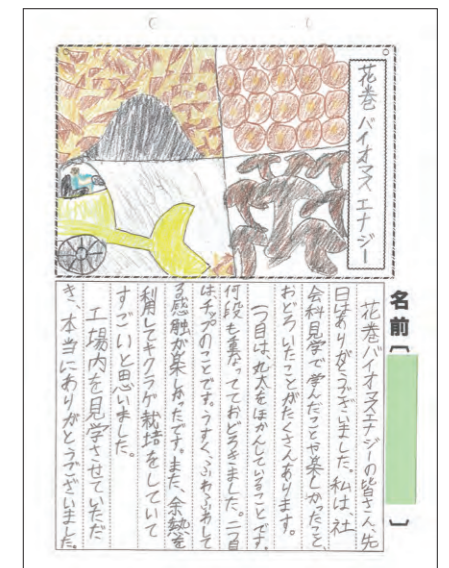 花巻バイオマスエナジー
名前〔 〕
花巻バイオマスエナジーの皆さん、先
日はありがとうございました。私は、社
会科見学で学んだことや楽しかったこと、
おどろいたことがたくさんあります。
一つ目は、丸太をほかんしていることです。
何段も重なってておどろきました。二つ目
は、チップのことです。うすく、ふわふわして
る感触が楽しかったです。また、余熱を
利用してキクラゲ栽培をしていて
すごいと思いました。
工場内を見学させていただ
き、本当にありがとうございました。